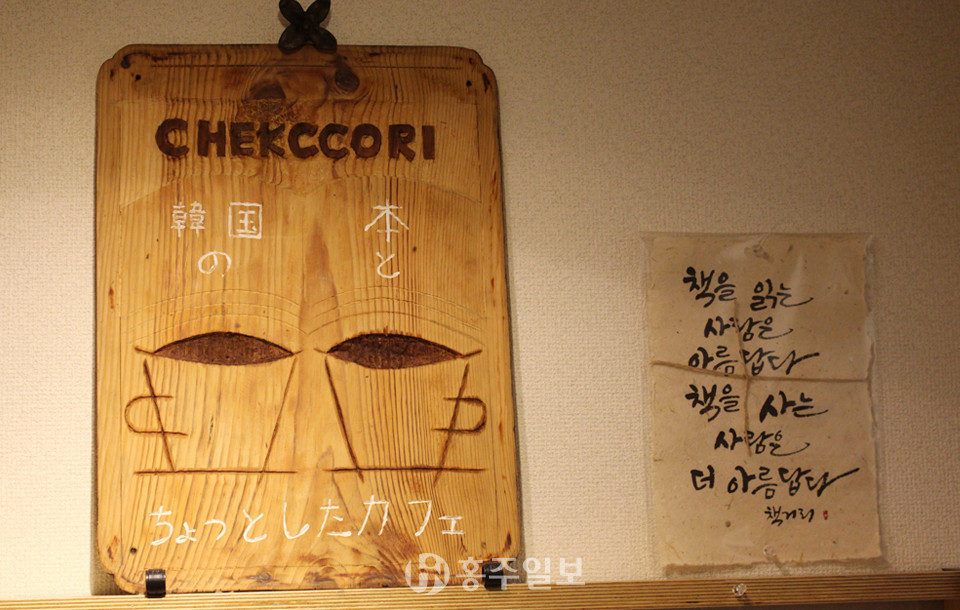 CHEKCCORI
韓国 本
の と
ちょっとしたカフェ
책을 읽는
사람은
아름답다
책을 사는
사람은
더 아름답다
책거리
홍주일보